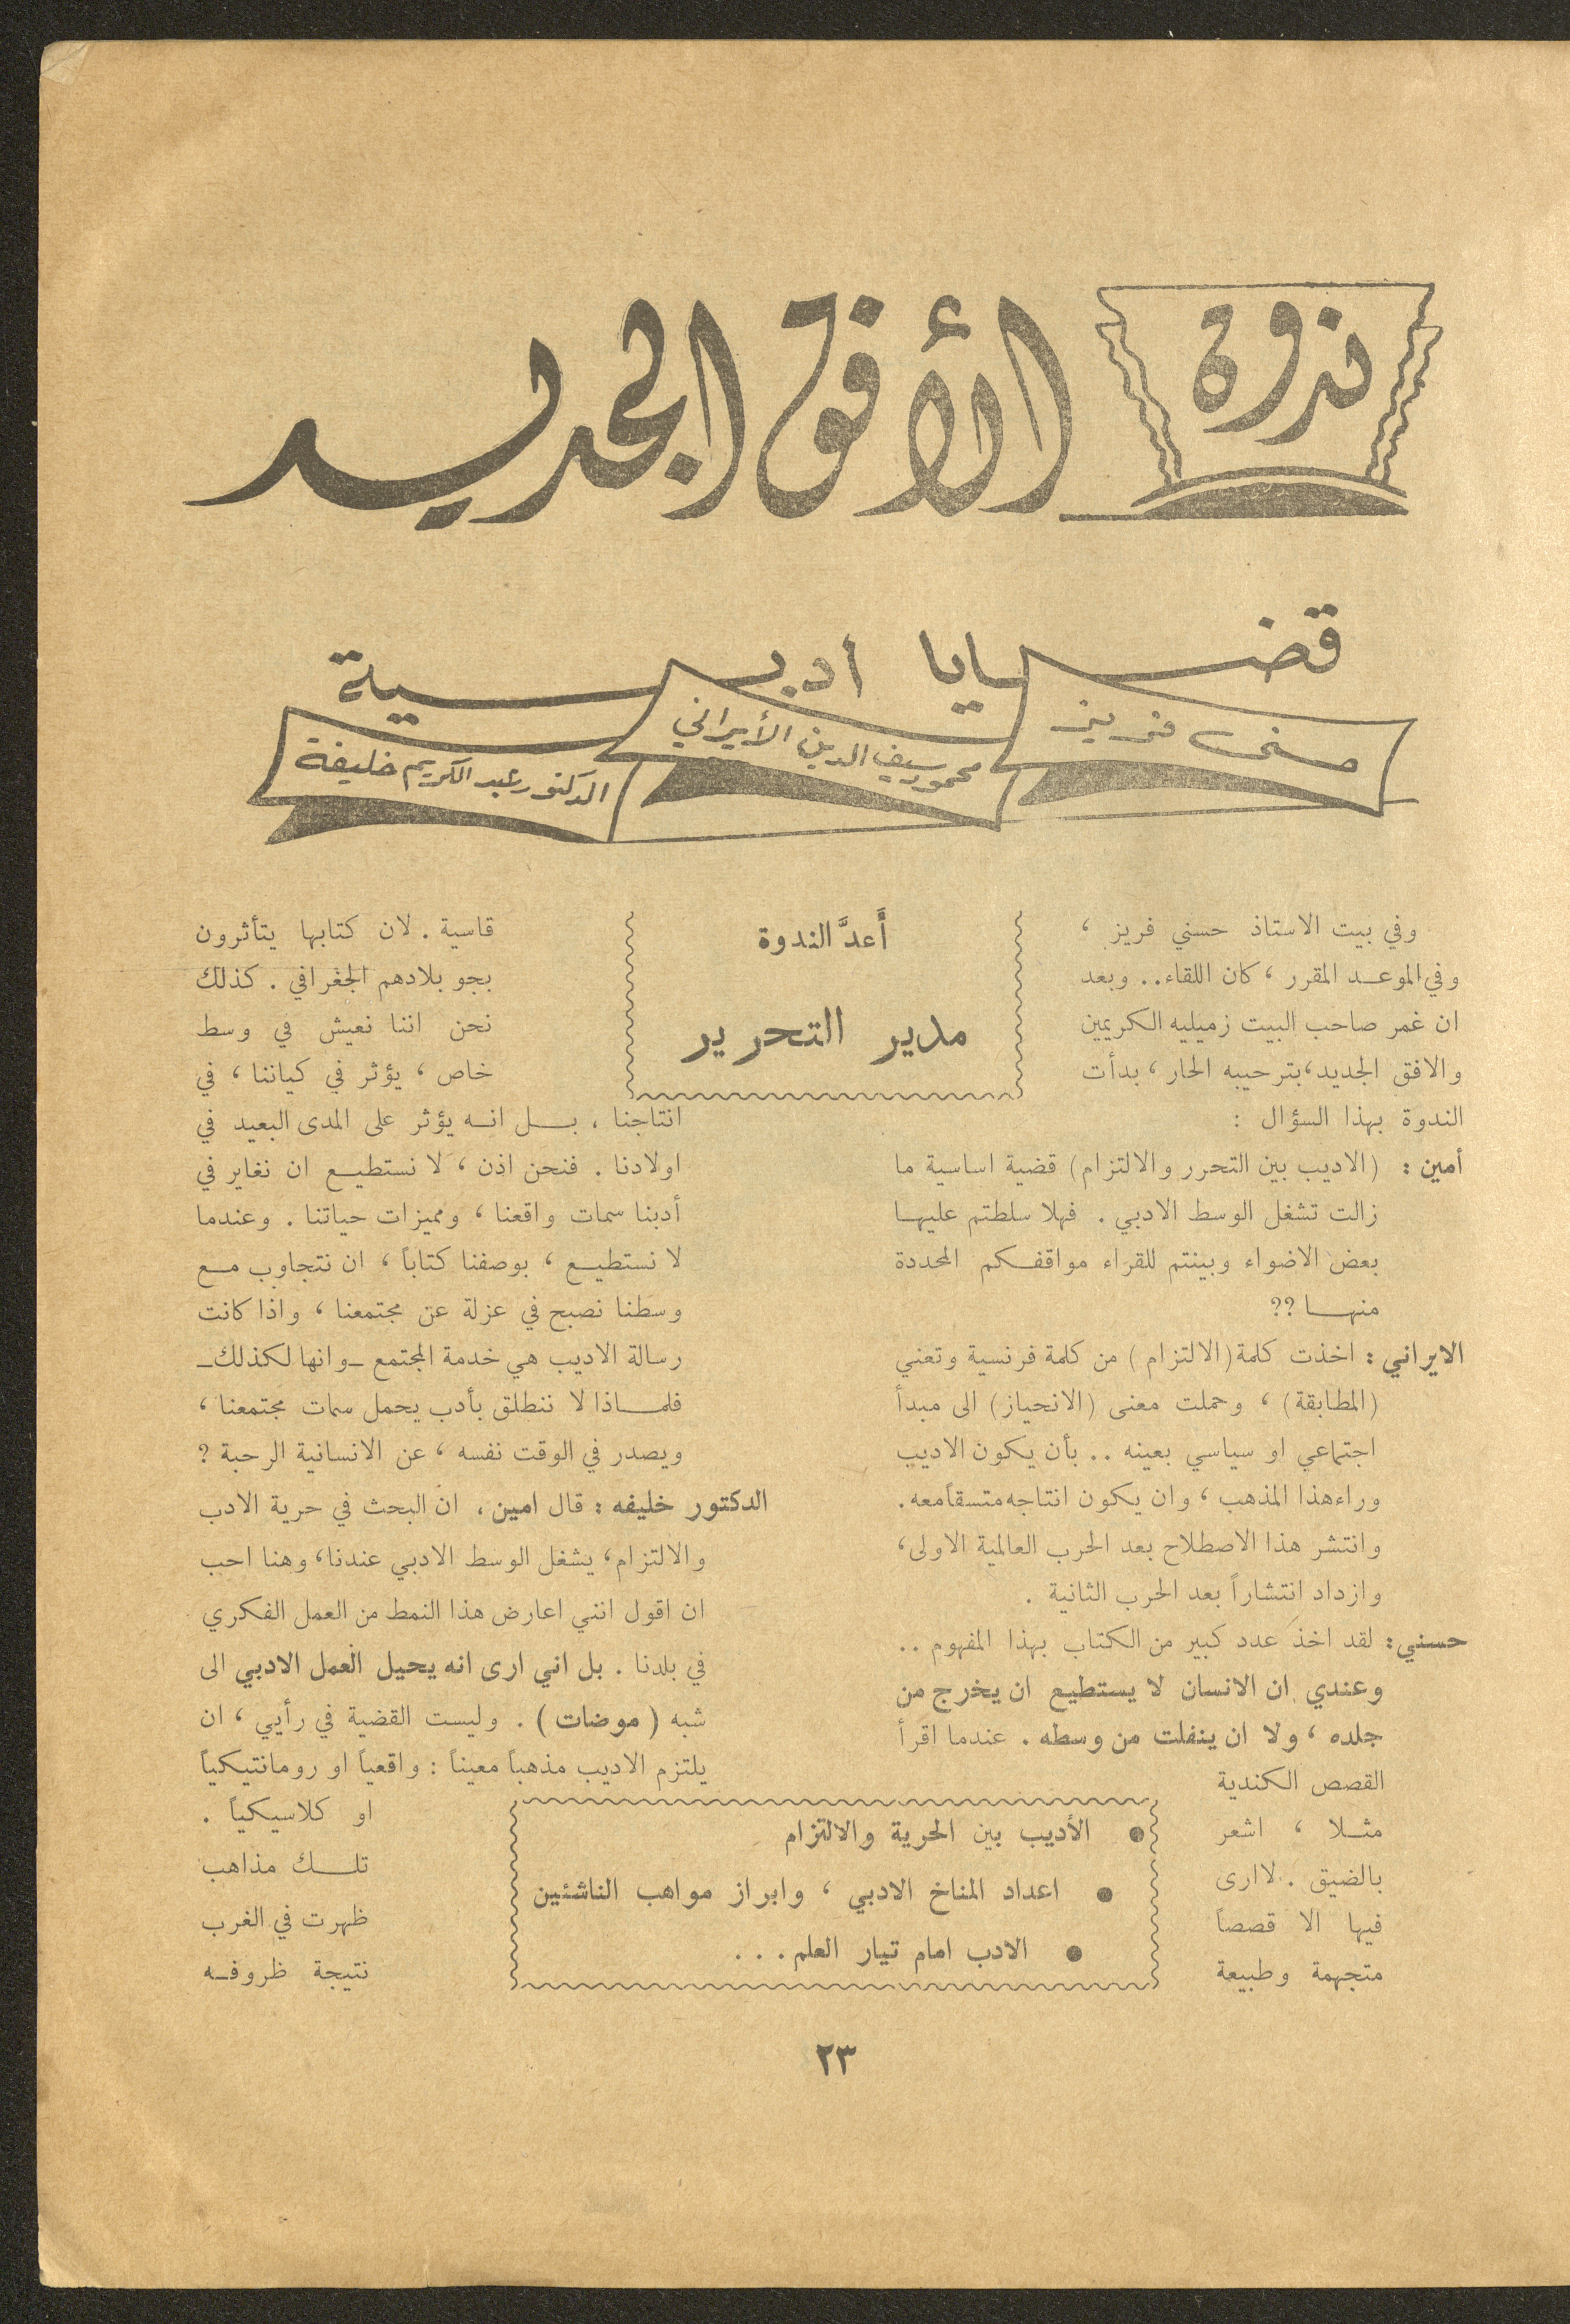 ندوة
الأفق الجديد
قضايا أدبية
حسني فريز
محمود سيف الدين الأيراني
الدكتور عبد الكريم خليفة
أَعدَّ الندوة
مدير التحرير
وفي بيت الاستاذ حسني فريز ،
وفي الموعـد المقرر ، كان اللقاء.. وبعد
ان غمر صاحب البيت زميليه الكريمين
والافق الجديد، بترحيبه الحار ، بدأت
الندوة بهذا السؤال :
أمين : (الاديب بين التحرر والالتزام) قضية اساسية ما
زالت تشغل الوسط الادبي . فهلا سلطتم عليهـا
بعض الاضواء وبينتم للقراء مواقفـكم المحددة
منهـا ??
الايراني : اخذت كلمة (الالتزام ) من كلمة فرنسية وتعني
(المطابقة) ، وحملت معنى (الانحياز) الى مبدأ
اجتماعي او سياسي بعينه .. بأن يكون الاديب
وراء هذا المذهب ، وان يكون انتاجه متسقاً معه.
وانتشر هذا الاصطلاح بعد الحرب العالمية الاولى،
وازداد انتشاراً بعد الحرب الثانية .
حسني : لقد اخذ عدد كبير من الكتاب بهذا المفهوم ..
وعندي ان الانسان لا يستطيع ان يخرج من
جلده ، ولا ان ينفلت من وسطه . عندما اقرأ
القصص الكندية
مثـلا ، اشعر
بالضيق . لا ارى
فيها الا قصصاً
متجهمة وطبيعة
قاسية . لان كتابها يتأثرون
بجو بلادهم الجغرافي . كذلك
نحن اننا نعيش في وسط
خاص ، يؤثر في كياننا ، في
انتاجنا ، بـل انـه يؤثر على المدى البعيد في
اولادنا . فنحن اذن ، لا نستطيـع ان نغاير في
أدبنا سمات واقعنا ، ومميزات حياتنا . وعندما
لا نستطيـع ، بوصفنا كتاباً ، ان نتجاوب مـع
وسطنا نصبح في عزلة عن مجتمعنا ، واذا كانت
رسالة الاديب هي خدمة المجتمع ـ وانها لكذلك ـ
فلمـاذا لا ننطلق بأدب يحمل سمات مجتمعنا ،
ويصدر في الوقت نفسه ، عن الانسانية الرحبة ?
الدكتور خليفه : قال امين ، ان البحث في حرية الادب
والالتزام، يشغل الوسط الادبي عندنا، وهنا احب
ان اقول انني اعارض هذا النمط من العمل الفكري
في بلدنا . بل اني ارى انه يحيل العمل الادبي الى
شبه (موضات) . وليست القضية في رأيي ، ان
يلتزم الاديب مذهباً معيناً : واقعياً او رومانتيكياً
او كلاسيكياً .
تلـك مذاهب
ظهرت في الغرب
نتيجة ظروفـه
● الأديب بين الحرية والالتزام
● اعداد المناخ الادبي ، وابراز مواهب الناشئين
● الادب امام تيار العلم . . .
٢٣